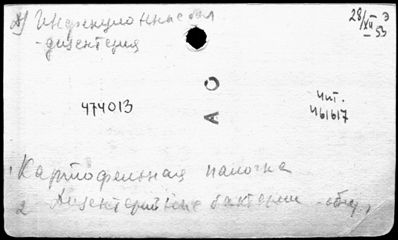 А) Инфекционные бол
- дизентерия
28/XII Э
- 53
474013
А О
Чит.
461617
1. Картофельная палочка
2 Дизентерийные бактерии - общ.